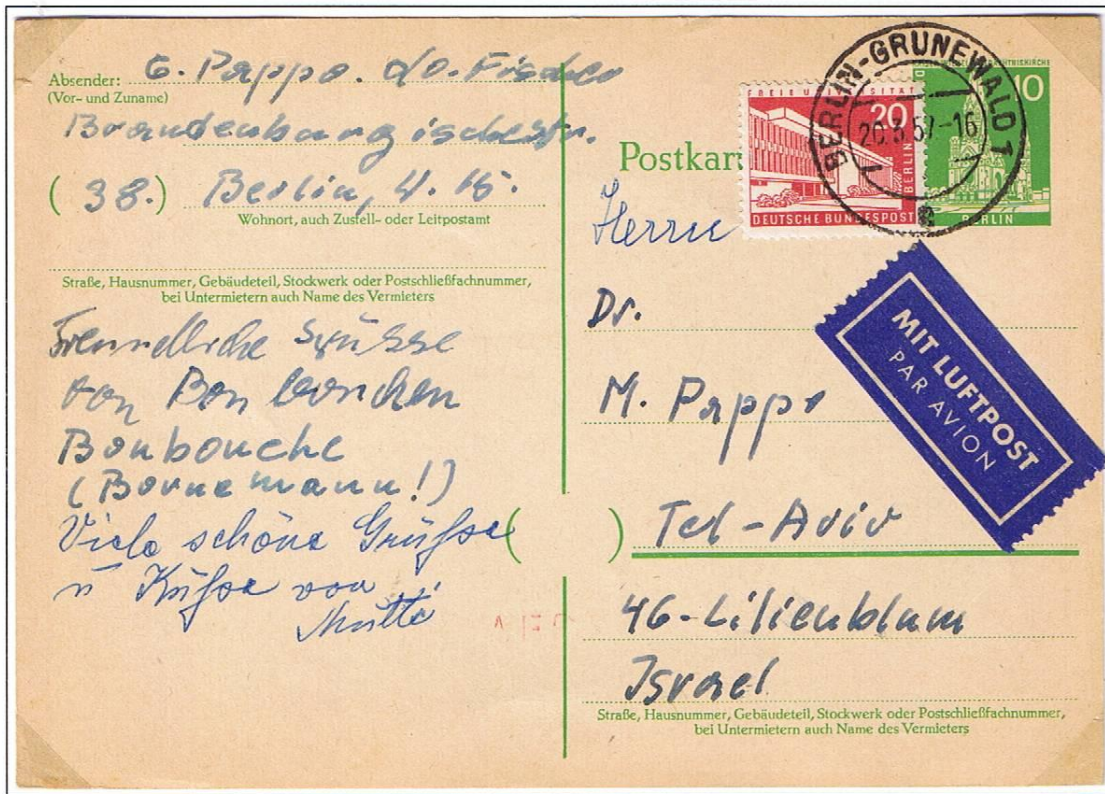 Absender: G. Pappo. c/o. Fischer
(Vor- und Zuname)
Brandenburgischestr.
(38.) Berlin, 4. 15.
Wohnort, auch Zustell- oder Leitpostamt
Straße, Hausnummer, Gebäudeteil, Stockwerk oder Postschließfachnummer,
bei Untermietern auch Name des Vermieters
Freundliche Grüsse
von
Bonbouche
(Bornemann!)
Viele schöne Grüße
u Küße von
Mutti
Postkar
FREIE UNIVERSITÄT
20
BERLIN
DEUTSCHE BUNDESPOST
BERLIN-GRUNEWALD 1
20.3.57-16
10
BERLIN
Herrn
Dr.
M. Pappo
MIT LUFTPOST
PAR AVION
( ) Tel-Aviv
46-Lilienblum
Israel
Straße, Hausnummer, Gebäudeteil, Stockwerk oder Postschließfachnummer,
bei Untermietern auch Name des Vermieters